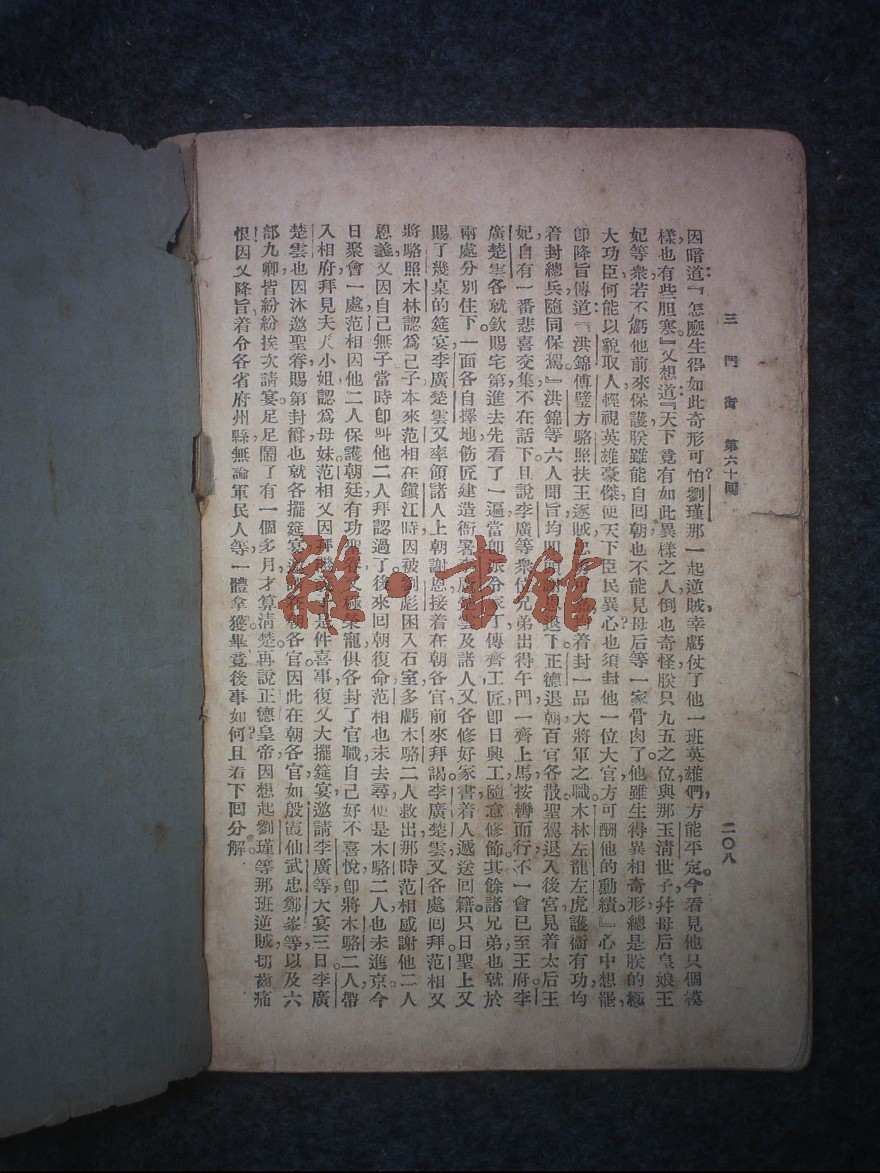 三門街 第六十回 二〇八
因暗道『怎麼生得如此奇形可怕?劉瑾那一起逆賊,幸虧仗了他一班英雄們,方能平定。今看見他只個模
樣,也有些胆寒』又想道『天下竟有如此異樣之人,倒也奇怪。朕只九五之位,與那玉清世子,幷母后皇娘王
妃等衆,若不虧他前來保護,朕雖能自回朝,也不能見母后等一家骨肉了。他雖生得異相奇形,總是朕的極
大功臣,何能以貌取人,輕視英雄豪傑,使天下臣民異心?也須封他一位大官,方可酬他的勳績。』心中想罷,
卽降旨傳道『洪錦傅璧方駱照扶王逐賊着封一品大將軍之職,木林左龍左虎護衞有功,均
着封總兵,隨同保駕。』洪錦等六人聞旨,均退下。正德退朝,百官各散,聖駕退入後宮,見着太后王
妃,自有一番悲喜交集,不在話下。且說李廣等衆位兄弟出得午門,一齊上馬,按轡而行,不一會已至王府。李
廣楚雲各就欽賜宅第,進去先看了一遍,當卽派分家丁,傳齊工匠,卽日興工,隨意修飾。其餘諸兄弟也就於
兩處分別住下。一面各自擇地飭匠建造衙署,李廣楚雲及諸人又各修好家書,着人遞送回籍。只日聖上又
賜了幾桌的筵宴,李廣楚雲又率領諸人上朝謝恩,接着在朝各官前來拜謁,李廣楚雲又各處回拜。范相又
將駱照木林認爲己子,本來范相在鎭江時,因被劉彪困入石室,多虧木駱二人救出,那時范相感謝他二人
恩義,又因自己無子,當時卽叫他二人拜認過了,後來回朝復命,范相也未去尋,便是木駱二人也未進京,今
日聚會一處,范相因他二人保護朝廷有功,聖眷又極榮寵,俱各封了官職,自己好不喜悅,卽將木駱二人帶
入相府,拜見夫人小姐,認爲母妹。范相又因是件喜事,復又大擺筵宴,邀請李廣等大宴三日。李廣
楚雲也因沐邀聖眷,賜第封爵,也就各擺筵宴,邀請在朝各官,因此在朝各官,如殷霞仙武忠鄭峯等,以及六
部九卿,皆紛紛挨次請宴,足足鬧了有一個多月,才算清楚。再說正德皇帝因想起劉瑾等那班逆賊,切齒痛
恨,因又降旨着令各省府州縣無論軍民人等,一體拿獲。畢竟後事如何?且看下回分解。
雜·書館